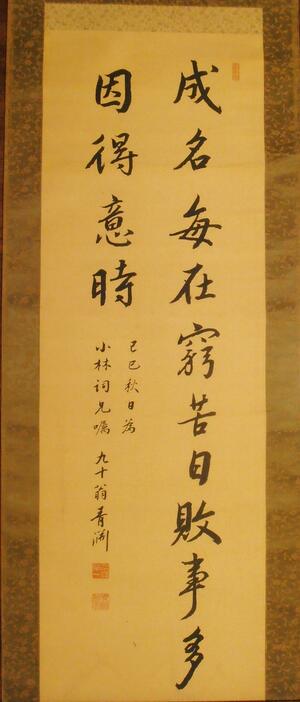 成名每在窮苦日敗事多
因得意時
己巳秋日為
小林詞兄嘱 九十翁青渊